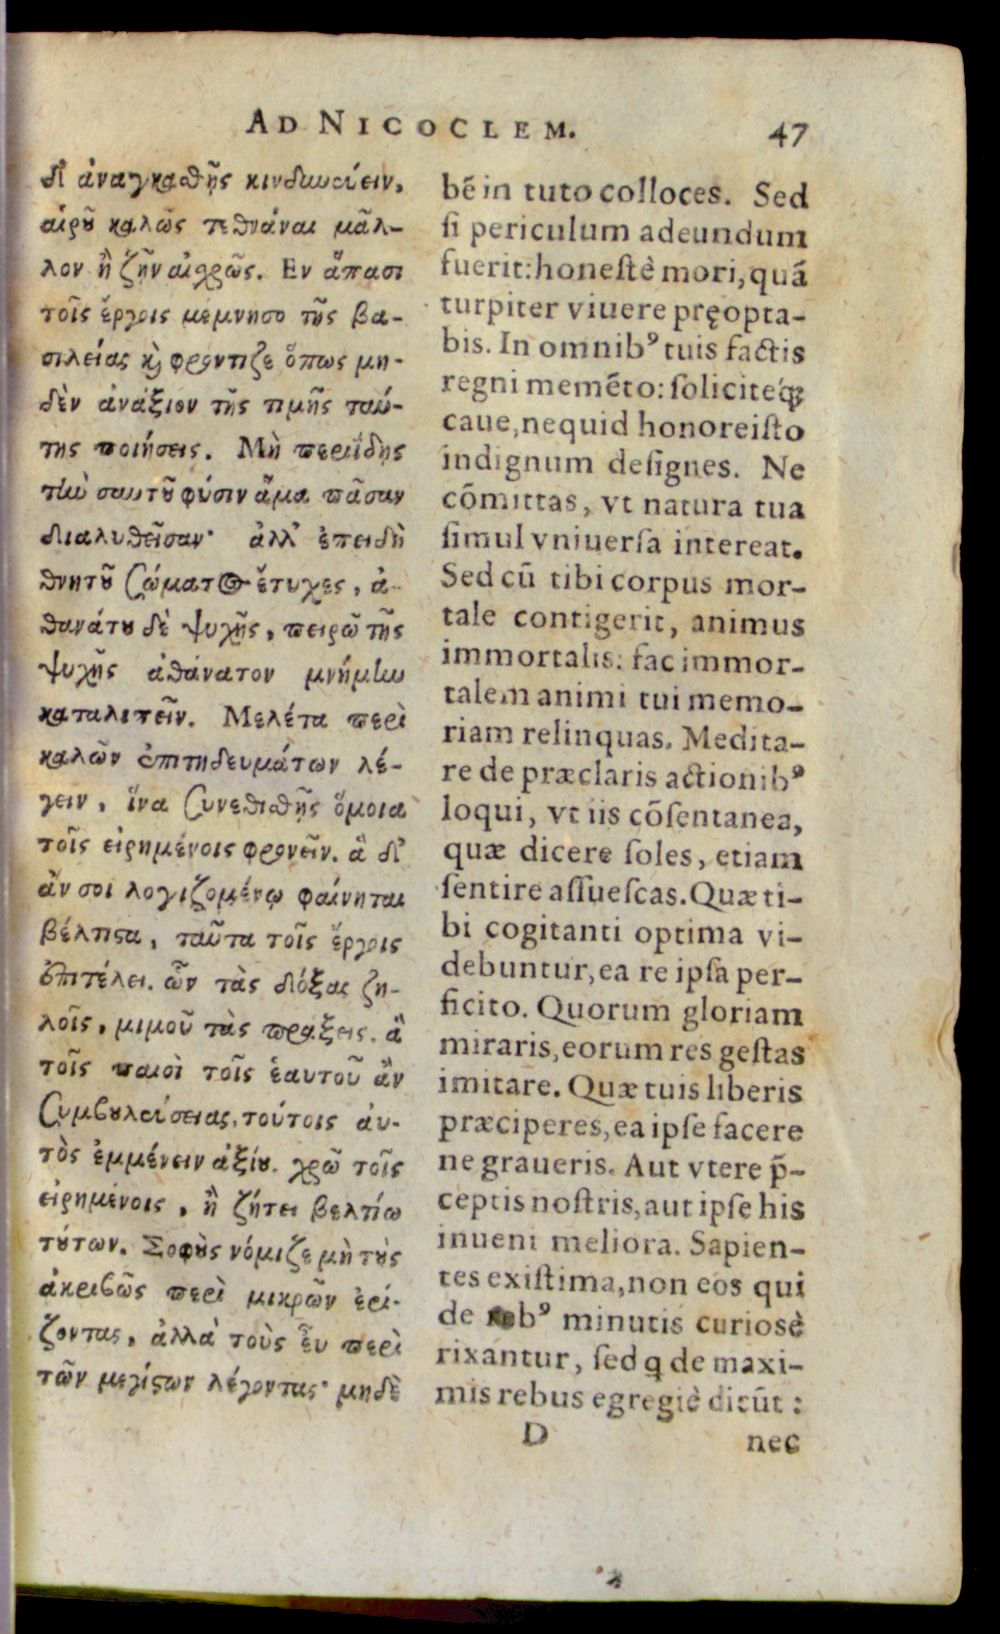 AD NICOCLEM. 47
δ' ἀναγκασθῇς κινδυνεύειν,
αἱροῦ καλῶς τεθνάναι μᾶλ-
λον ἢ ζῆν αἰσχρῶς. Εν ἅπασι
τοῖς ἔργοις μέμνησο τῆς βα-
σιλείας καὶ φρόντιζε ὅπως μη-
δὲν ἀνάξιον τῆς τιμῆς ταύ-
της ποιήσεις. Μὴ περιίδῃς
τὴν σαυτοῦ φύσιν ἅμα πᾶσαν
διαλυθεῖσαν· ἀλλ' ἐπειδὴ
θνητοῦ σώματος ἔτυχες, ἀ-
θανάτου δὲ ψυχῆς, πειρῶ τῆς
ψυχῆς ἀθάνατον μνήμην
καταλιπεῖν. Μελέτα περὶ
καλῶν ἐπιτηδευμάτων λέ-
γειν, ἵνα συνεθισθῇς ὅμοια
τοῖς εἰρημένοις φρονεῖν. ἃ δ'
ἄν σοι λογιζομένῳ φαίνηται
βέλτιστα, ταῦτα τοῖς ἔργοις
ἐπιτέλει. ὧν τὰς δόξας ζη-
λοῖς, μιμοῦ τὰς πράξεις. ἃ
τοῖς παισὶ τοῖς ἑαυτοῦ ἂν
συμβουλεύσειας, τούτοις αὐ-
τὸς ἐμμένειν ἀξίου. χρῶ τοῖς
εἰρημένοις, ἢ ζήτει βελτίω
τούτων. Σοφοὺς νόμιζε μὴ τοὺς
ἀκριβῶς περὶ μικρῶν ἐρί-
ζοντας, ἀλλὰ τοὺς εὖ περὶ
τῶν μεγίστων λέγοντας· μηδὲ
bē in tuto colloces. Sed
ſi periculum adeundum
fuerit: honeſtè mori, quā
turpiter viuere pręopta-
bis. In omnibꝰ tuis factis
regni memēto: ſoliciteq́ꝫ
caue, nequid honore iſto
indignum deſignes. Ne
cōmittas, vt natura tua
ſimul vniuerſa intereat.
Sed cū tibi corpus mor-
tale contigerit, animus
immortalis: fac immor-
talem animi tui memo-
riam relinquas. Medita-
re de præclaris actionibꝰ
loqui, vt iis cōſentanea,
quæ dicere ſoles, etiam
ſentire aſſueſcas. Quæ ti-
bi cogitanti optima vi-
debuntur, ea re ipſa per-
ficito. Quorum gloriam
miraris, eorum res geſtas
imitare. Quæ tuis liberis
præciperes, ea ipſe facere
ne graueris. Aut vtere p̄-
ceptis noſtris, aut ipſe his
inueni meliora. Sapien-
tes exiſtima, non eos qui
de rebꝰ minutis curioſè
rixantur, ſed q de maxi-
mis rebus egregiè dicūt:
D nec